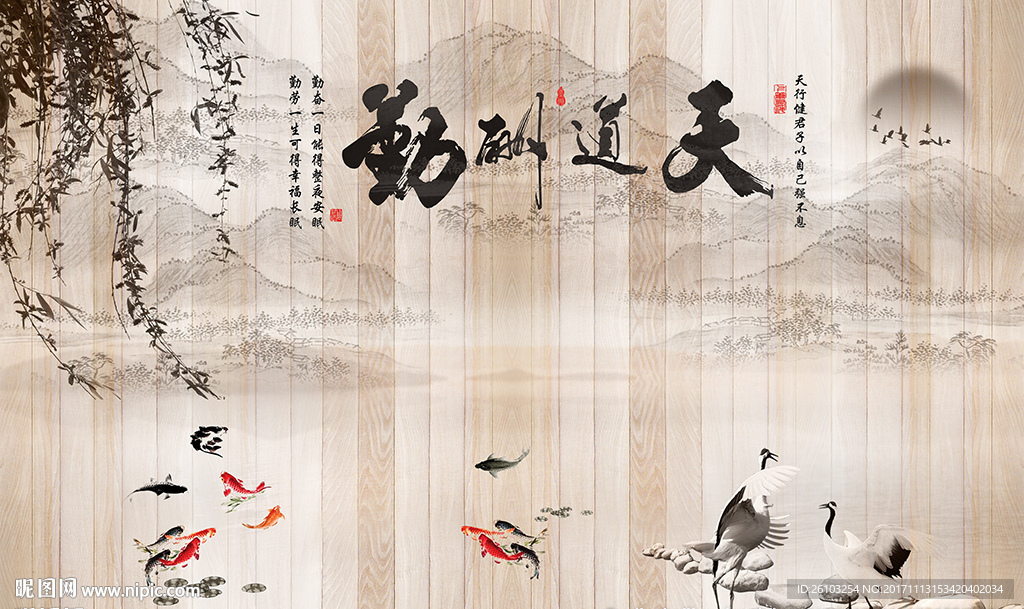 天道酬勤
天行健君子以自己强不息
勤奋一日能得整夜安眠
勤劳一生可得幸福长眠
昵图网 www.nipic.com
ID:26103254 NO:20171113153420402034